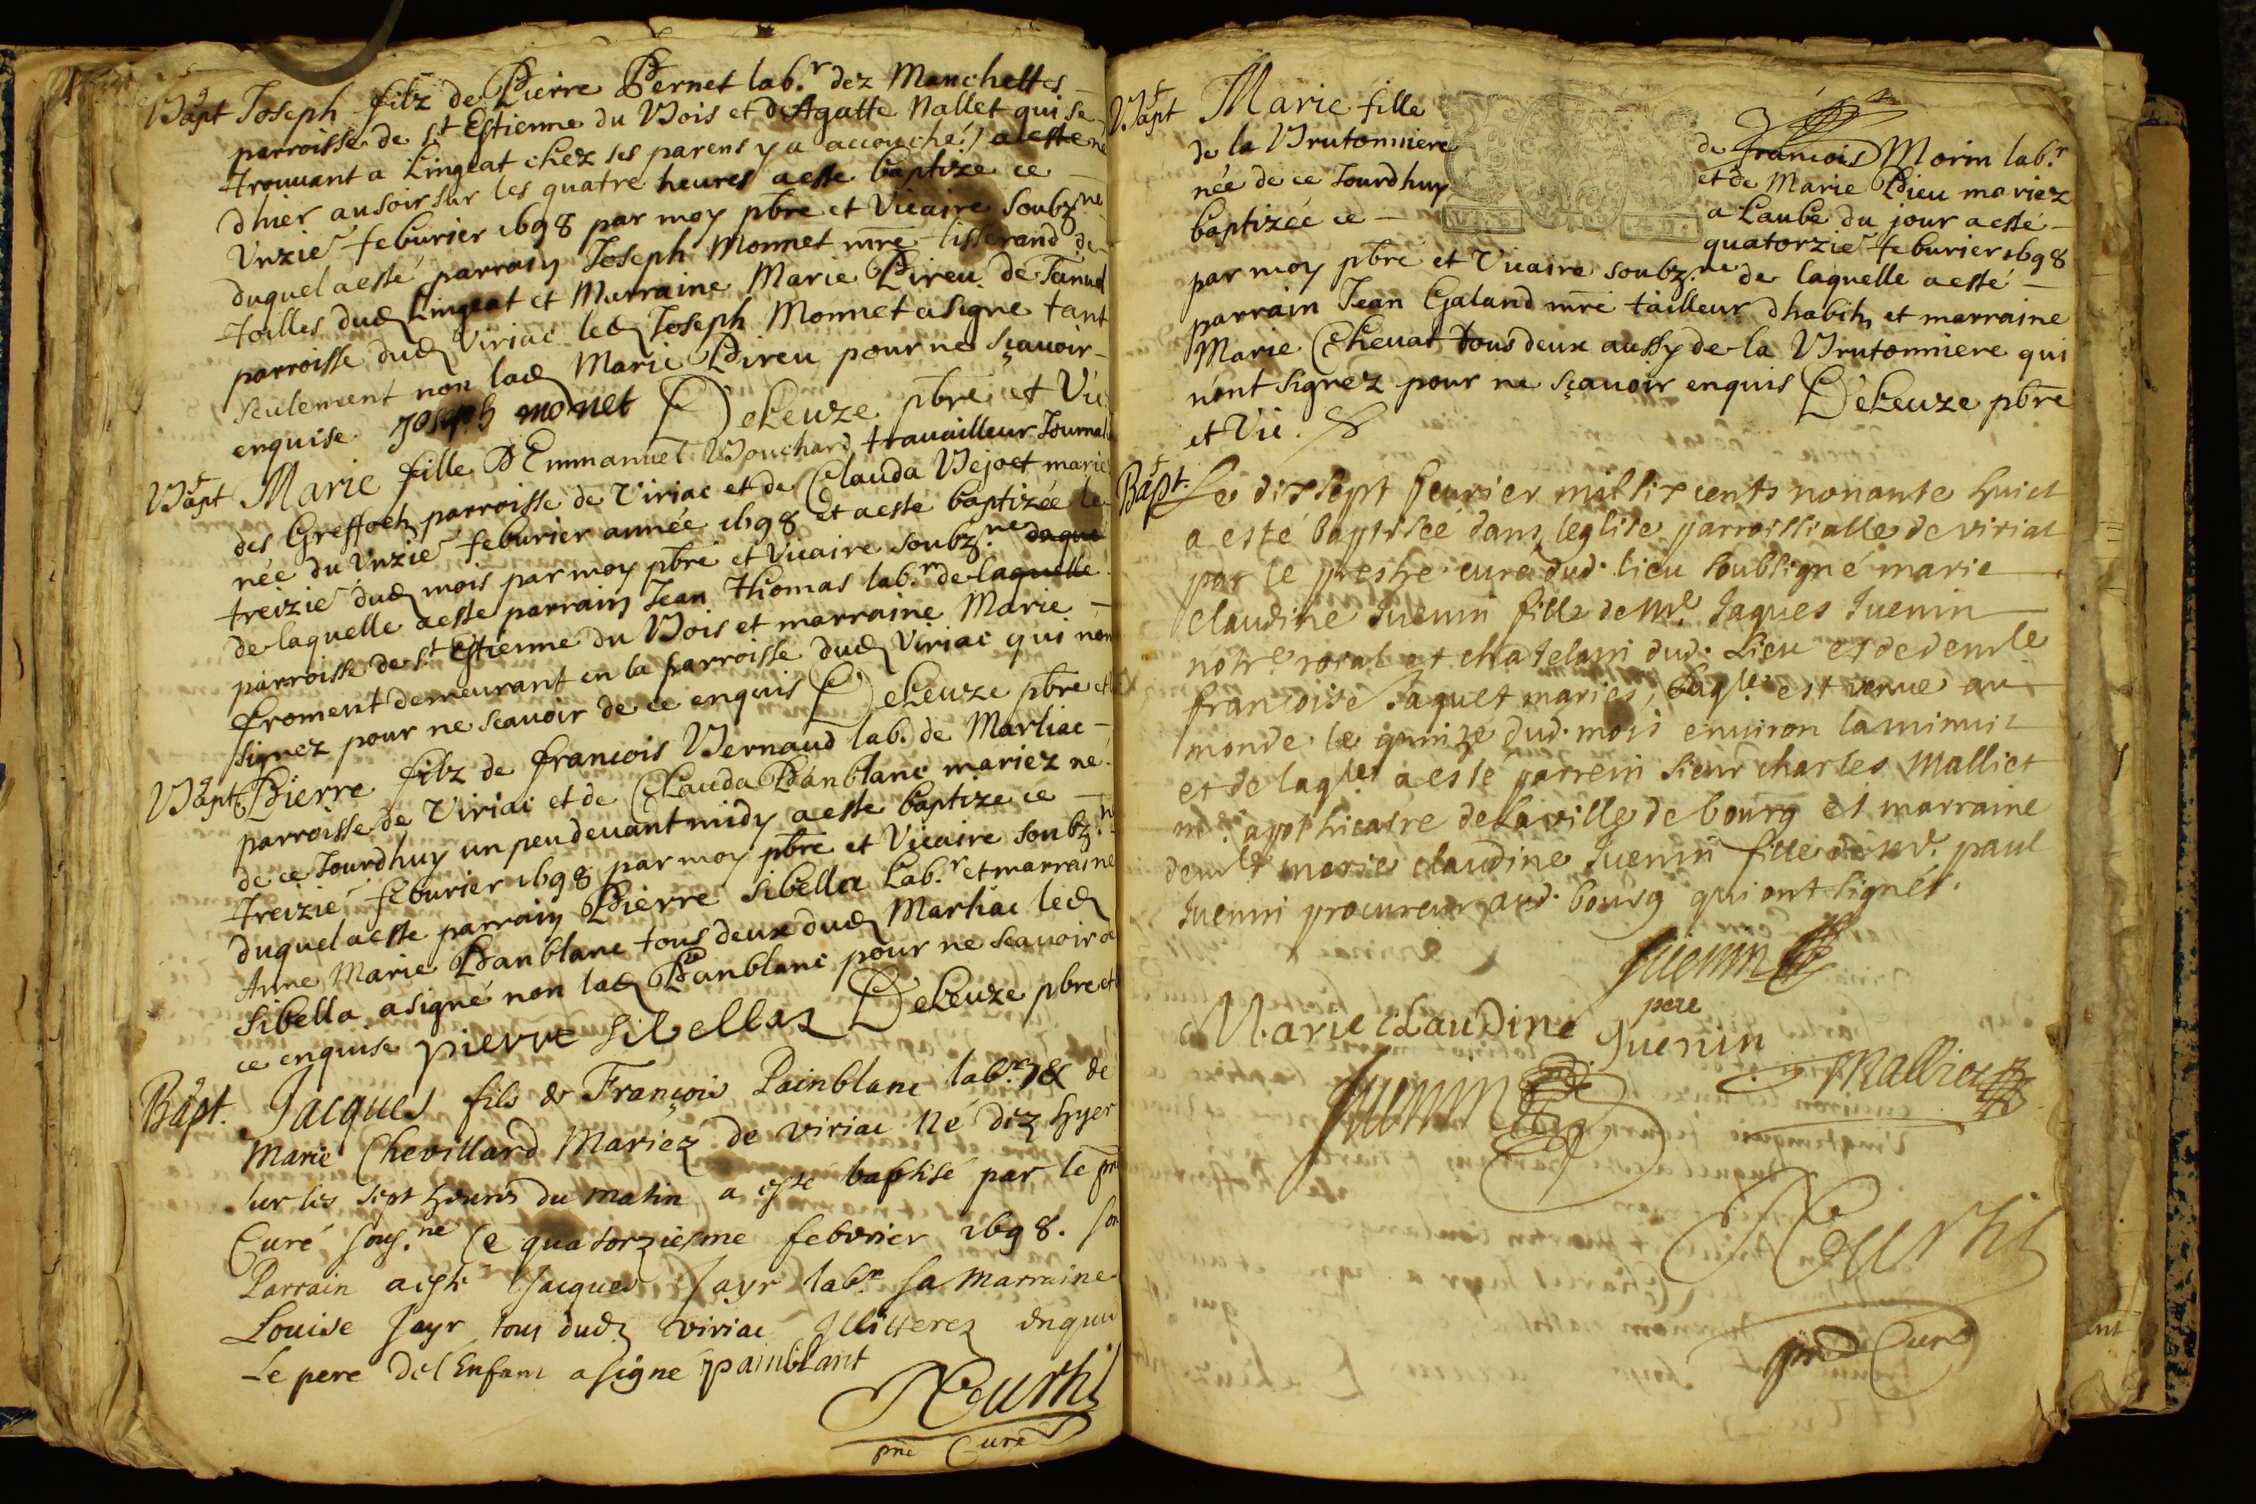 Bapt Joseph filz de Pierre Pernet lab.r dez Manchettes
parroisse de st Estienne du Bois et d'Agatte Nallet qui se
trouvant a Lingeat chez ses parens y a accouché) a esté né
dhier au soir sur les quatre heures a esté baptizé ce
Unzie feburier 1698 par moy pbre et Vicaire soubz.ne
duquel a esté parrain Joseph Monnet mre tisserand de
toilles dud Lingeat et Marraine Marie Pireu de
parroisse dud Viriac led Joseph Monnet a signé tant
seulement non lad Marie Pireu pour ne sçavoir
enquise Joseph monet Deleuze pbre et Vic
Bapt Marie fille D'Emmanuel Bouchard travailleur Journal
des Greffoetz parroisse de Viriac et de Clauda Bejoet marie
née du Unzie feburier année 1698 et a esté baptizée le
treizie dud mois par moy pbre et Vicaire soubz.ne duque
de laquelle a esté parrain Jean Thomas lab.r de laquelle
parroisse de st Estienne du Bois et marraine Marie
froment demeurant en la parroisse dud Viriac qui non
signez pour ne scavoir de ce enquis Deleuze pbre et
Bapt Pierre filz de francois Bernaud lab. de Marliac
parroisse de Viriac et de Clauda Panblanc mariez né
de ce Jourdhuy un peu devant midy a esté baptizé ce
treizie feburier 1698 par moy pbre et Vicaire soubz.ne
duquel a esté parrain Pierre Sibella Lab.r et marraine
Anne Marie Panblanc tous deux dud Marliac led
Sibella a signé non lad Panblanc pour ne scavoir de
ce enquise pierre sibellaz Deleuze pbre et
Bapt. Jacques fils de François Painblanc lab.r & de
Marie Chevillard Mariez de viriac né dez hyer
sur les sept heures du matin a esté baptisé par le pre
Curé sous.né le quatorziesme febvrier 1698. son
Parrain a esté Jacques Jayr lab.r sa marraine
Louise Jayr tous dudz viriac Illiterez enquis
Le pere de l'Enfant a signé painblant
pre Curé
Bapt Marie fille de francois Morin lab.r
de la Brutonniere et de Marie Pieu mariez
née de ce Jourdhuy a Laube du jour a esté
baptizée ce quatorzie feburier 1698
par moy pbre et Vicaire soubz.ne de laquelle a esté
parrain Jean Galand mre tailleur dhabitz et marraine
Marie Chevat tous deux aussy de la Brutonniere qui
n'ont signez pour ne sçavoir enquis Deleuze pbre
et Vic.
Bapt. Le dix sept feurier mil six cents nonante huict
a esté baptisée dans leglise parroissialle de viriat
par le prestre curé dud. lieu soubsigné marie
claudine Juenin fille de Mre Jaques Juenin
notre roial et chatelain dud. Lieu et de demlle
francoise Jaquet mariés, laqle est venue au
monde le quinze dud. mois environ la minuit
et de laqle a esté parrein sieur charles Malliet
me apothicaire de la ville de bourg et marraine
demlle marie claudine Juenin fille de sr. paul
Juenin procureur aud. bourg qui ont signés.
Juenin
pere
Marie claudine Juenin
Juenin
Malliet
pre Curé